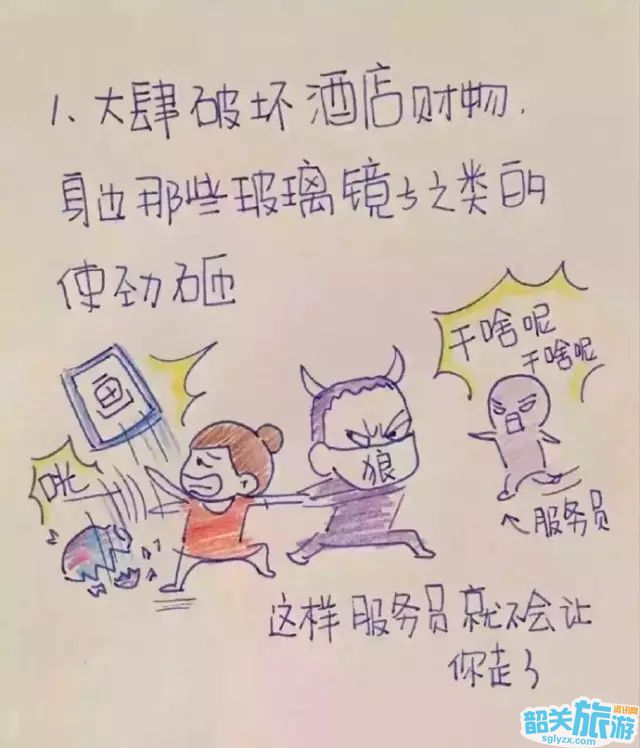 1、大肆破坏酒店财物.
身边那些玻璃镜子之类的
使劲砸
画
咣
狼
干啥呢
干啥呢
服务员
这样服务员就不会让
你走了
韶关旅游
资讯网
sglyzx.com